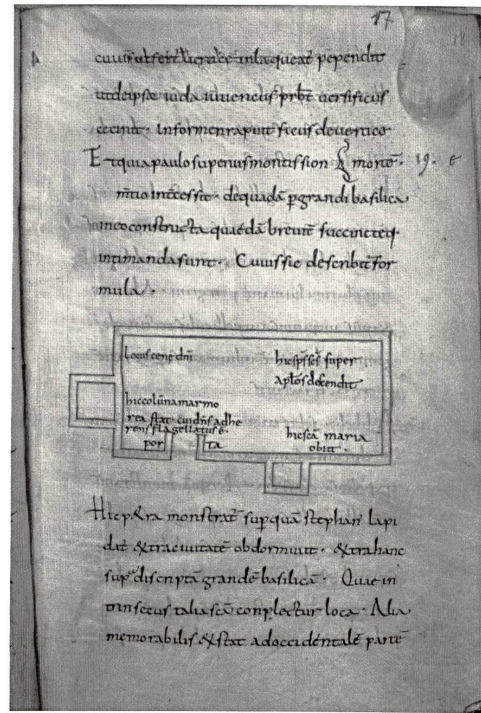 17
pependit
cecinit · Informen rapuit ficus de uertice
Et quia paulo superius montis sion mortē · 19. e
mtio int̄cessit · de quadā p̱grandi basilica
in eo constructa quaedā breuit̄ succincteq·
intimanda sunt · Cuius sic describit̄ for
mula ·
locus cene dn̄i
hic sp̄s sc̄s super
apl̄os descendit
hic colūna marmo
rea stat cui dn̄s adhe
rens flagellatus ē ·
por ta
hic sc̄a maria
obiit ·
Hic p&ra monstrat̄ sup̱ quā stephan' lapi
dat' &xtra ciuitatē obdormiuit · &xtra hanc
sup̱ͣ discriptā grandē basilicā · Quae in
trinsecus talia sc̄a conplectitur loca · Alia
memorabilis &xstat ad occidentalē partē